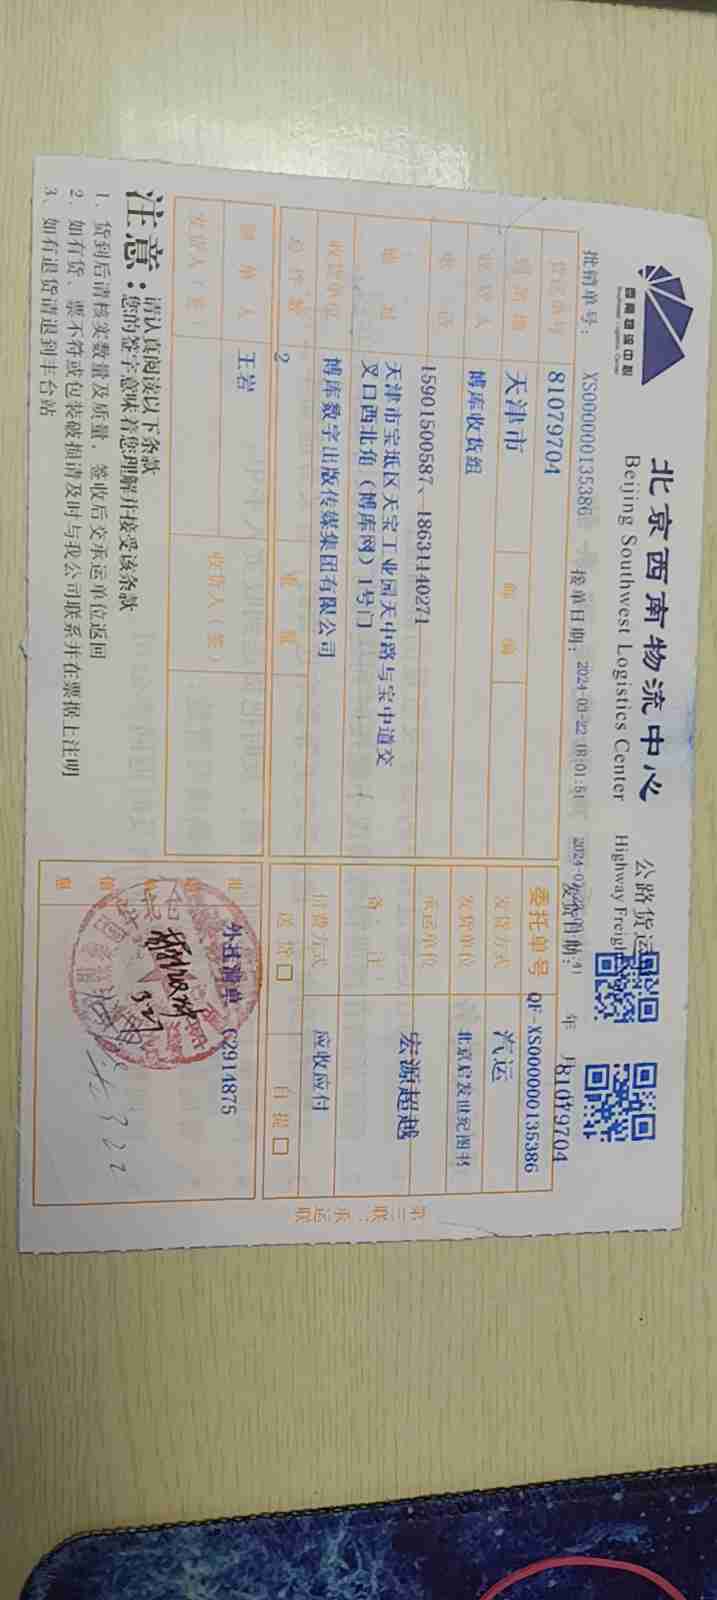 西南物流中心
Southwest Logistics Center
北京西南物流中心
Beijing Southwest Logistics Center
公路货运
Highway Freigh
批销单号： XS000000135386
接单日期： 2024-03-22 18:01:51
发货日期： 年 月
81079704
货运单号 81079704
委托单号 QF-XS000000135386
到站 天津市 邮编
发货方式 汽运
收货人 博库收货组
发货单位 北京启发世纪图书
电话 15901500587、18631140271
承运单位 宏源超越
地址 天津市宝坻区天宝工业园天中路与宝中道交
叉口西北角（博库网）1号门
备注
收货单位 博库数字出版传媒集团有限公司
付费方式 应收应付
总件数 2 重量
送货□ 自提□
制单人 王岩 收货人（签）
发货人（签）
批 外埠清单 C2914875
信
息
注意：请认真阅读以下条款
您的签字意味着您理解并接受该条款
1、货到后请核实数量及质量，签收后交承运单位返回
2、如有货、票不符或包装破损请及时与我公司联系并在票据上注明
3、如有退货请退到丰台站
第三联：承运联